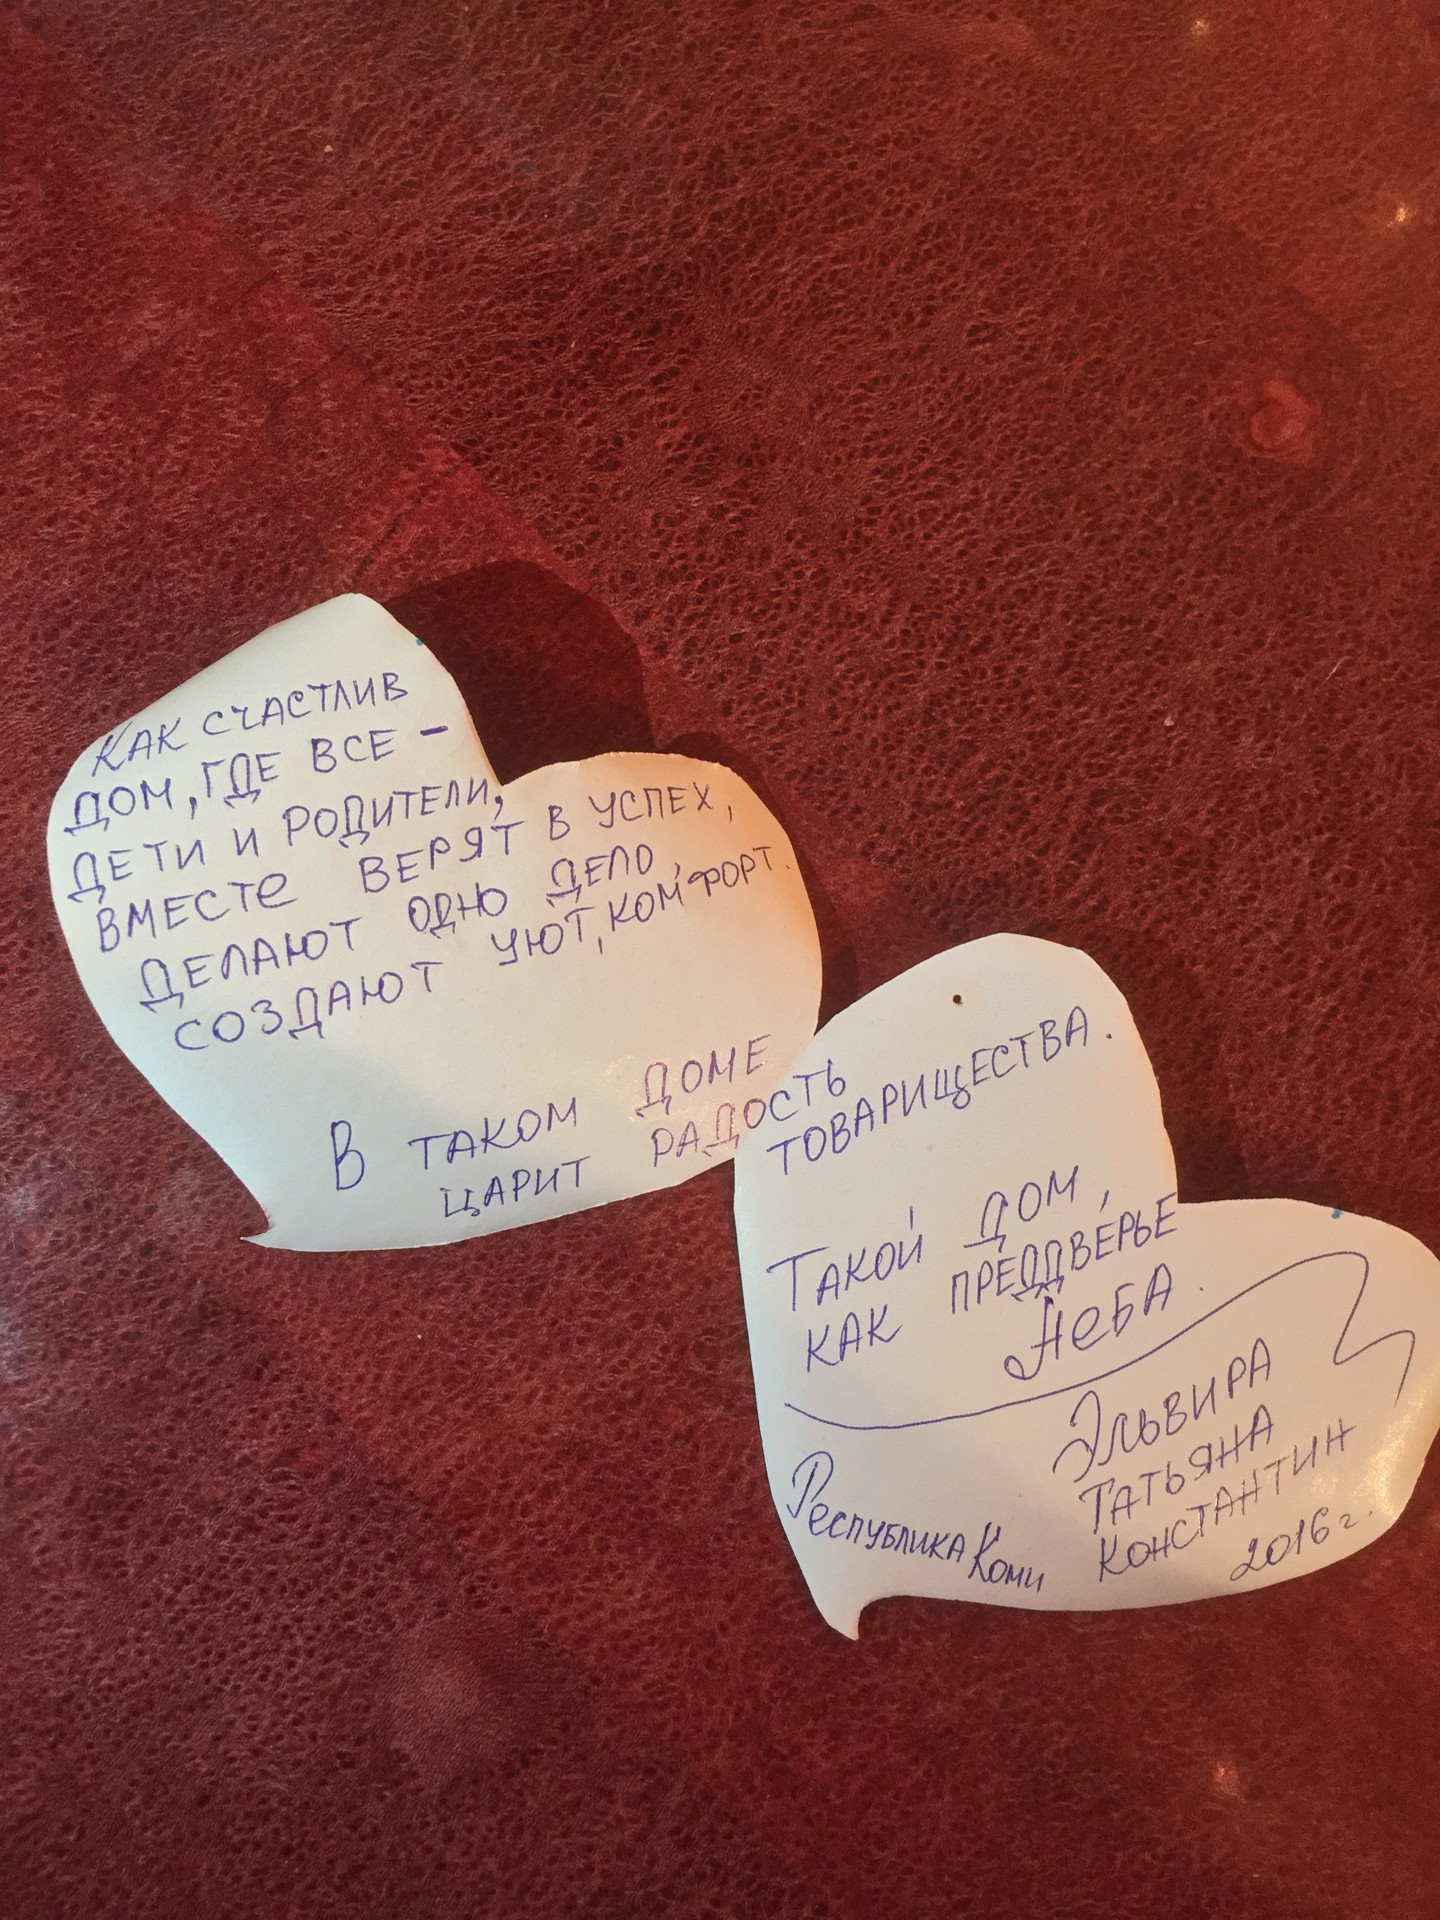 КАК СЧАСТЛИВ
ДОМ, ГДЕ ВСЕ –
ДЕТИ И РОДИТЕЛИ,
ВМЕСТЕ ВЕРЯТ В УСПЕХ,
ДЕЛАЮТ ОДНО ДЕЛО,
СОЗДАЮТ УЮТ, КОМФОРТ.
В ТАКОМ ДОМЕ
ЦАРИТ РАДОСТЬ
ТОВАРИЩЕСТВА.
ТАКОЙ ДОМ,
КАК ПРЕДДВЕРЬЕ
НЕБА.
ЭЛЬВИРА
ТАТЬЯНА
КОНСТАНТИН
РЕСПУБЛИКА КОМИ
2016 г.